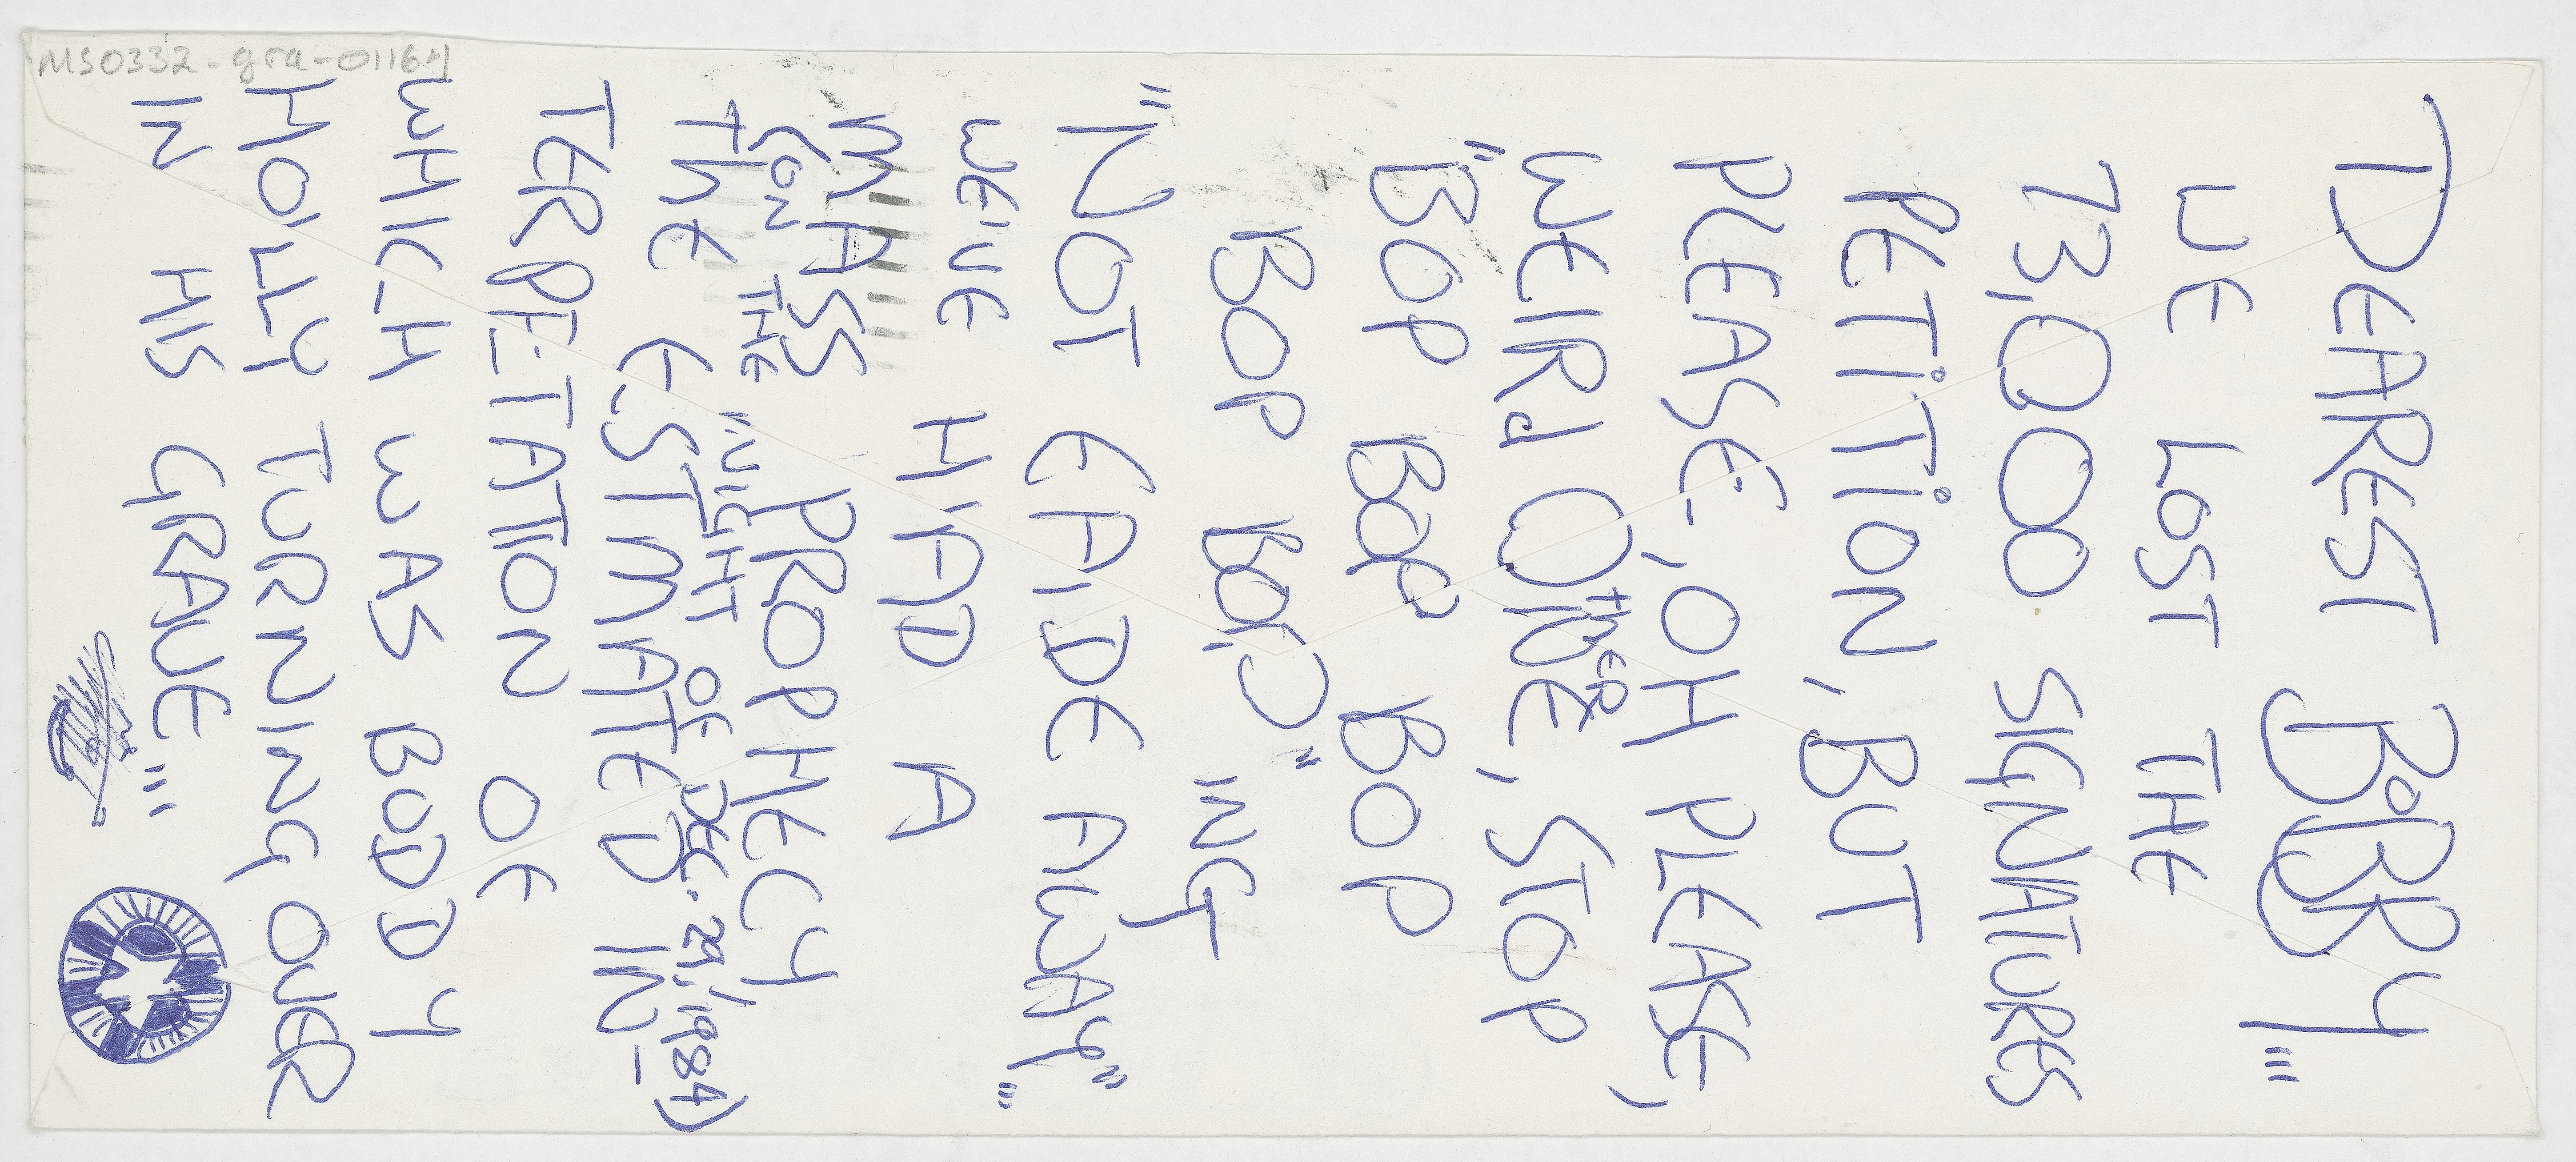 MS0332-gra-01164
DEAREST BOBBY'''
WE LOST THE
73,000 SIGNATURES
PETiTiON, BUT
PLEASE, OH PLEASE,
THERE
WEIRd ONE, STOP
"BOP BOP BOP
BOP BOP" 'ING
"NOT FADE AWAY"...
WE'VE HAD A
MASS PROPHECY
(ON THE "NIGHT OF DEC. 29, 1984)
THE ESTIMATED IN-
TERPETATION OF
WHICH WAS BUDDY
HOLLY TURNING OVER
IN HIS GRAVE'''